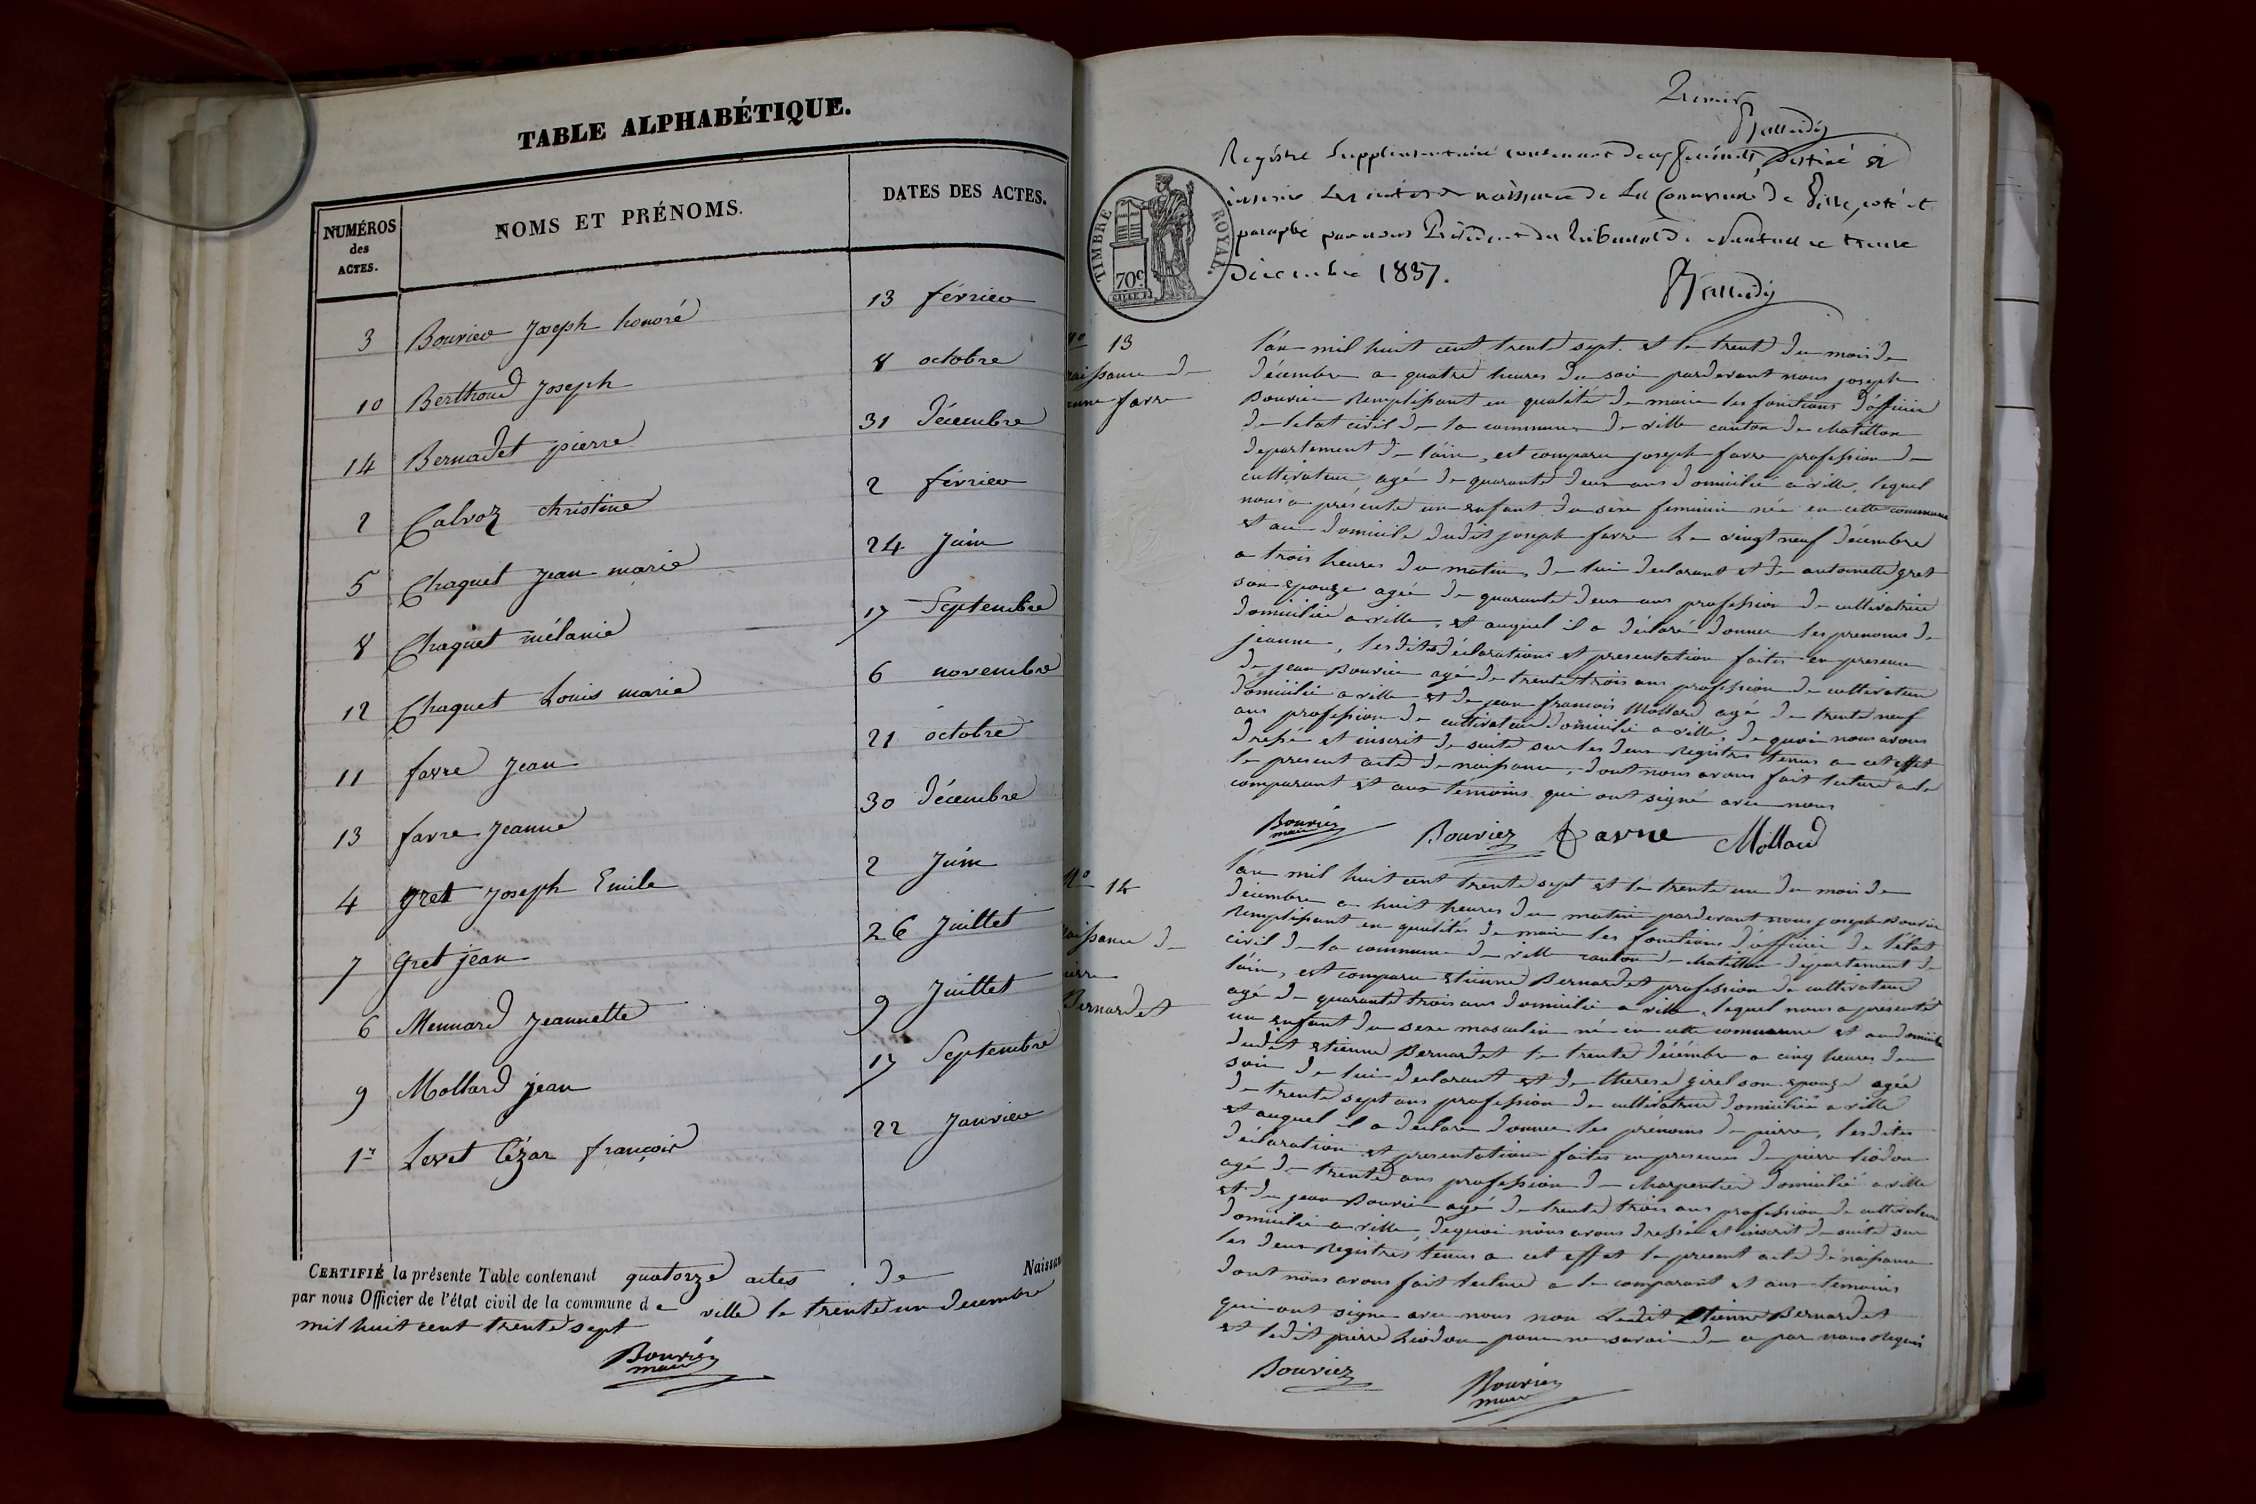 TABLE ALPHABÉTIQUE.
NUMÉROS des ACTES. NOMS ET PRÉNOMS. DATES DES ACTES.
3 Bouvier Joseph honoré 13 février
10 Berthoud Joseph 8 octobre
14 Bernadet pierre 31 décembre
2 Calvoz christine 2 février
5 Chaquet Jean marie 24 Juin
8 Chaquet mélanie 17 Septembre
12 Chaquet Louis marie 6 novembre
11 favre Jean 21 octobre
13 favre Jeanne 30 décembre
4 gret Joseph Emile 2 Juin
7 gret jean 26 Juillet
6 Mennard Jeannette 9 Juillet
9 Mollard jean 17 Septembre
1er Levet Cézar françois 22 Janvier
CERTIFIÉ la présente Table contenant quatorze actes de Naissan
par nous Officier de l'état civil de la commune de ville le trente un decembre
mil huit cent trente sept
Bouvier
maire
Premier
Registre Supplémentaire contenant deux feuillets, destiné à
inserer les actes de naissance de la Commune de Ville, coté et
paraphé par nous Président du Tribunal de Nantua le trente
Décembre 1837.
TIMBRE ROYAL.
70c.
No 13
naissance de
jeanne favre
l'an mil huit cent trente sept et le trente du mois de
décembre a quatre heures du soir pardevant nous joseph
Bouvier Remplissant en qualité de maire les fonctions d'officier
de l'etat civil de la commune de ville canton de chatillon
departement de l'ain, est comparu joseph favre profession de
cultivateur agé de quarante deux ans domicilié a ville, lequel
nous a présenté un enfant du sexe feminin née en cette commune
et au domicile dudit joseph favre le vingt neuf décembre
a trois heures du matin, de lui declarant et de antoinette gret
son epouze agée de quarante deux ans profession de cultivatrice
domiciliée a ville, et auquel il a déclaré donner les prenoms de
jeanne, lesdites déclaration et presentation faites en presence
de jean Bouvier agé de trente trois ans profession de cultivateur
domicilié a ville et de jean francois Mollard agé de trente neuf
ans profession de cultivateur domicilié a ville, de quoi nous avons
dressé et inscrit de suite sur les deux registres tenus a cet effet
le present acte de naissance, dont nous avons fait lecture a la
comparant et aux temoins qui ont signé avec nous
Bouvier
maire
Bouviez favre Mollard
No 14
naissance de
pierre
Bernardet
l'an mil huit cent trente sept et le trente un du mois de
décembre a huit heures du matin pardevant nous joseph Bouvier
Remplissant en qualités de maire les fonctions d'officier de l'état
civil de la commune de ville canton de chatillon département de
l'ain, est comparu etienne Bernardet profession de cultivateur
agé de quarante trois ans domicilié a ville, lequel nous a presenté
un enfant du sexe masculin né en cette commune et au domicile
dudit etienne Bernardet le trente décembre a cinq heures du
soir de lui declarant et de therese girel son epouze agée
de trente sept ans profession de cultivatrice domiciliée a ville
et auquel il a declaré donner les prénoms de pierre, lesdites
déclaration et presentation faites en presence de pierre
agé de trente ans profession de charpentier domicilié a ville
et de jean Bouvier agé de trente trois ans profession de cultivateur
domicilié a ville, de quoi nous avons dressé et inscrit de suite sur
les deux registres tenus a cet effet le present acte de naissance
dont nous avons fait lecture a le comparant et aux temoins
qui ont signé avec nous non ledit Etienne Bernardet
et ledit pierre pour ne savoir de ce par nous requis
Bouviez
Bouvier
maire